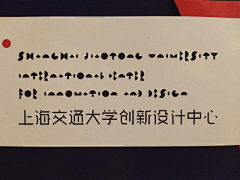 SHANGHAI JIAOTONG UNIVERSITY
INTERNATIONAL CENTER
FOR INNOVATION AND DESIGN
上海交通大学创新设计中心